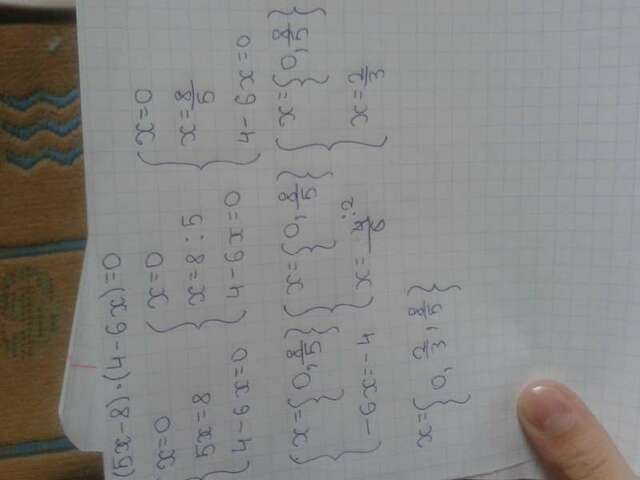 (5x-8)·(4-6x)=0
x=0 { x=0 { x=0
5x=8 x=8:5 x=8/5
{ 4-6x=0 4-6x=0 4-6x=0
{ x={0, 8/5} { x={0, 8/5} { x={0, 8/5}
-6x=-4 x=4:2/6 x=2/3
x={0, 2/3, 8/5}